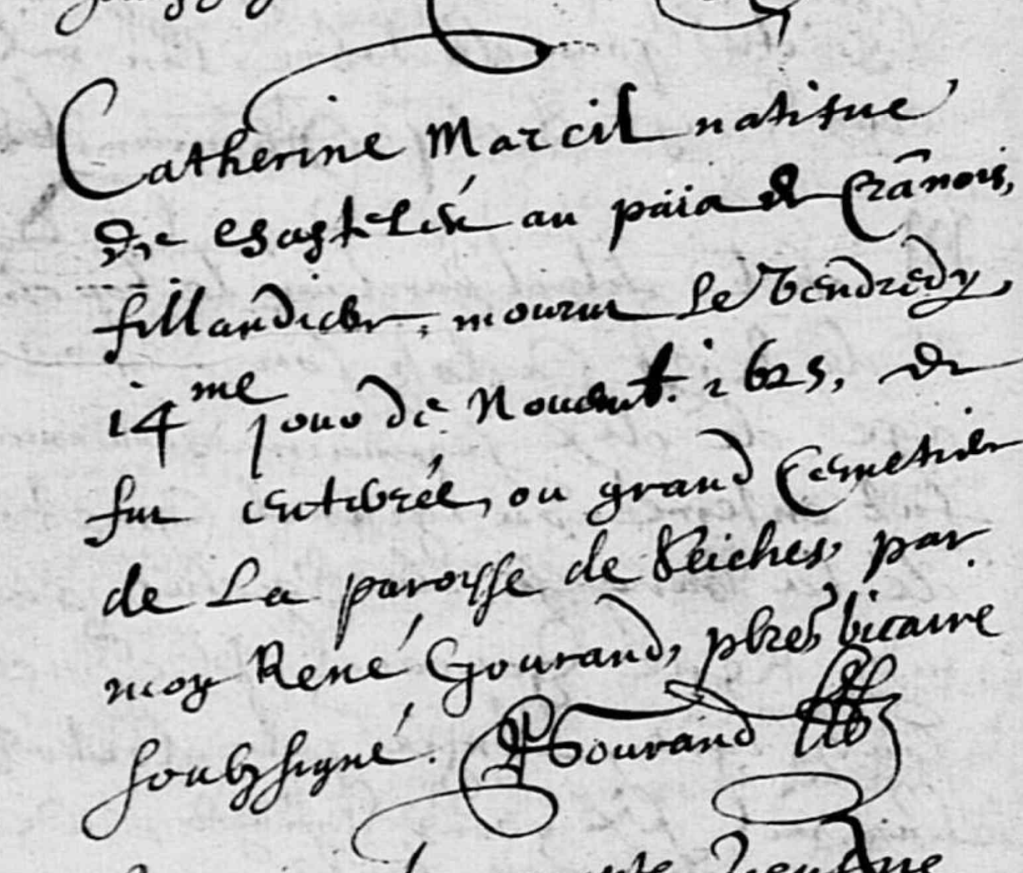 Catherine Marcil natifue
de Chastelés au païs de Crãnois,
fillandiere, mourut le Vendredy,
14me jour de Nouemb. 1625, &
fut enterrée, ou grand Cemetiere
de La paroysse de Seiches, par
moy René Gourand, pbre, vicaire
soubzsigné. R Gourand